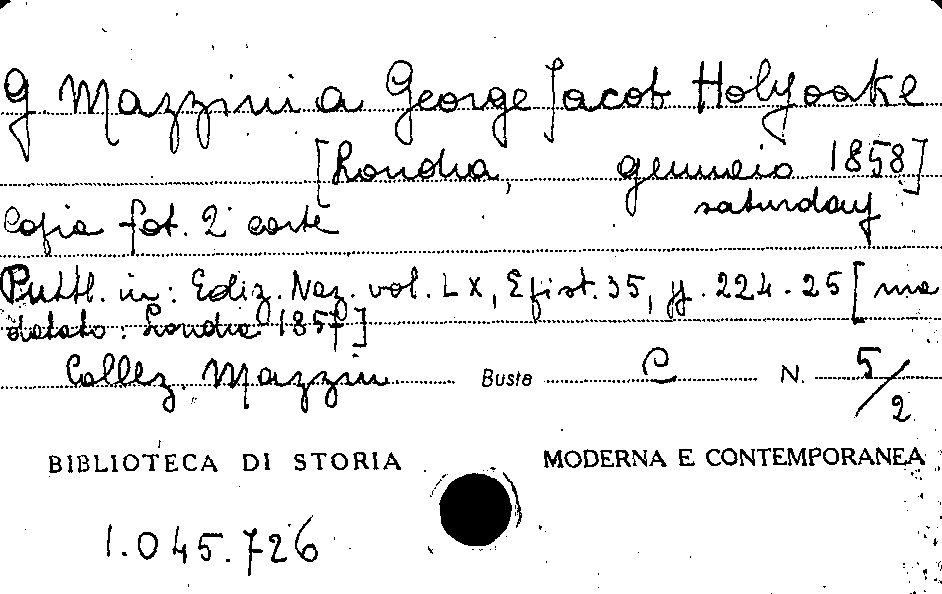 G Mazzini a George Jacob Holyoake
[Londra, gennaio 1858]
saturday
Copia fot. 2 carte
Pubbl. in: Ediz. Naz. vol. LX, Epist. 35, pp. 224-25 [ma
datato: Londra 1857]
Collez. Mazzini Busta C N. 5/2
BIBLIOTECA DI STORIA MODERNA E CONTEMPORANEA
1.045.726